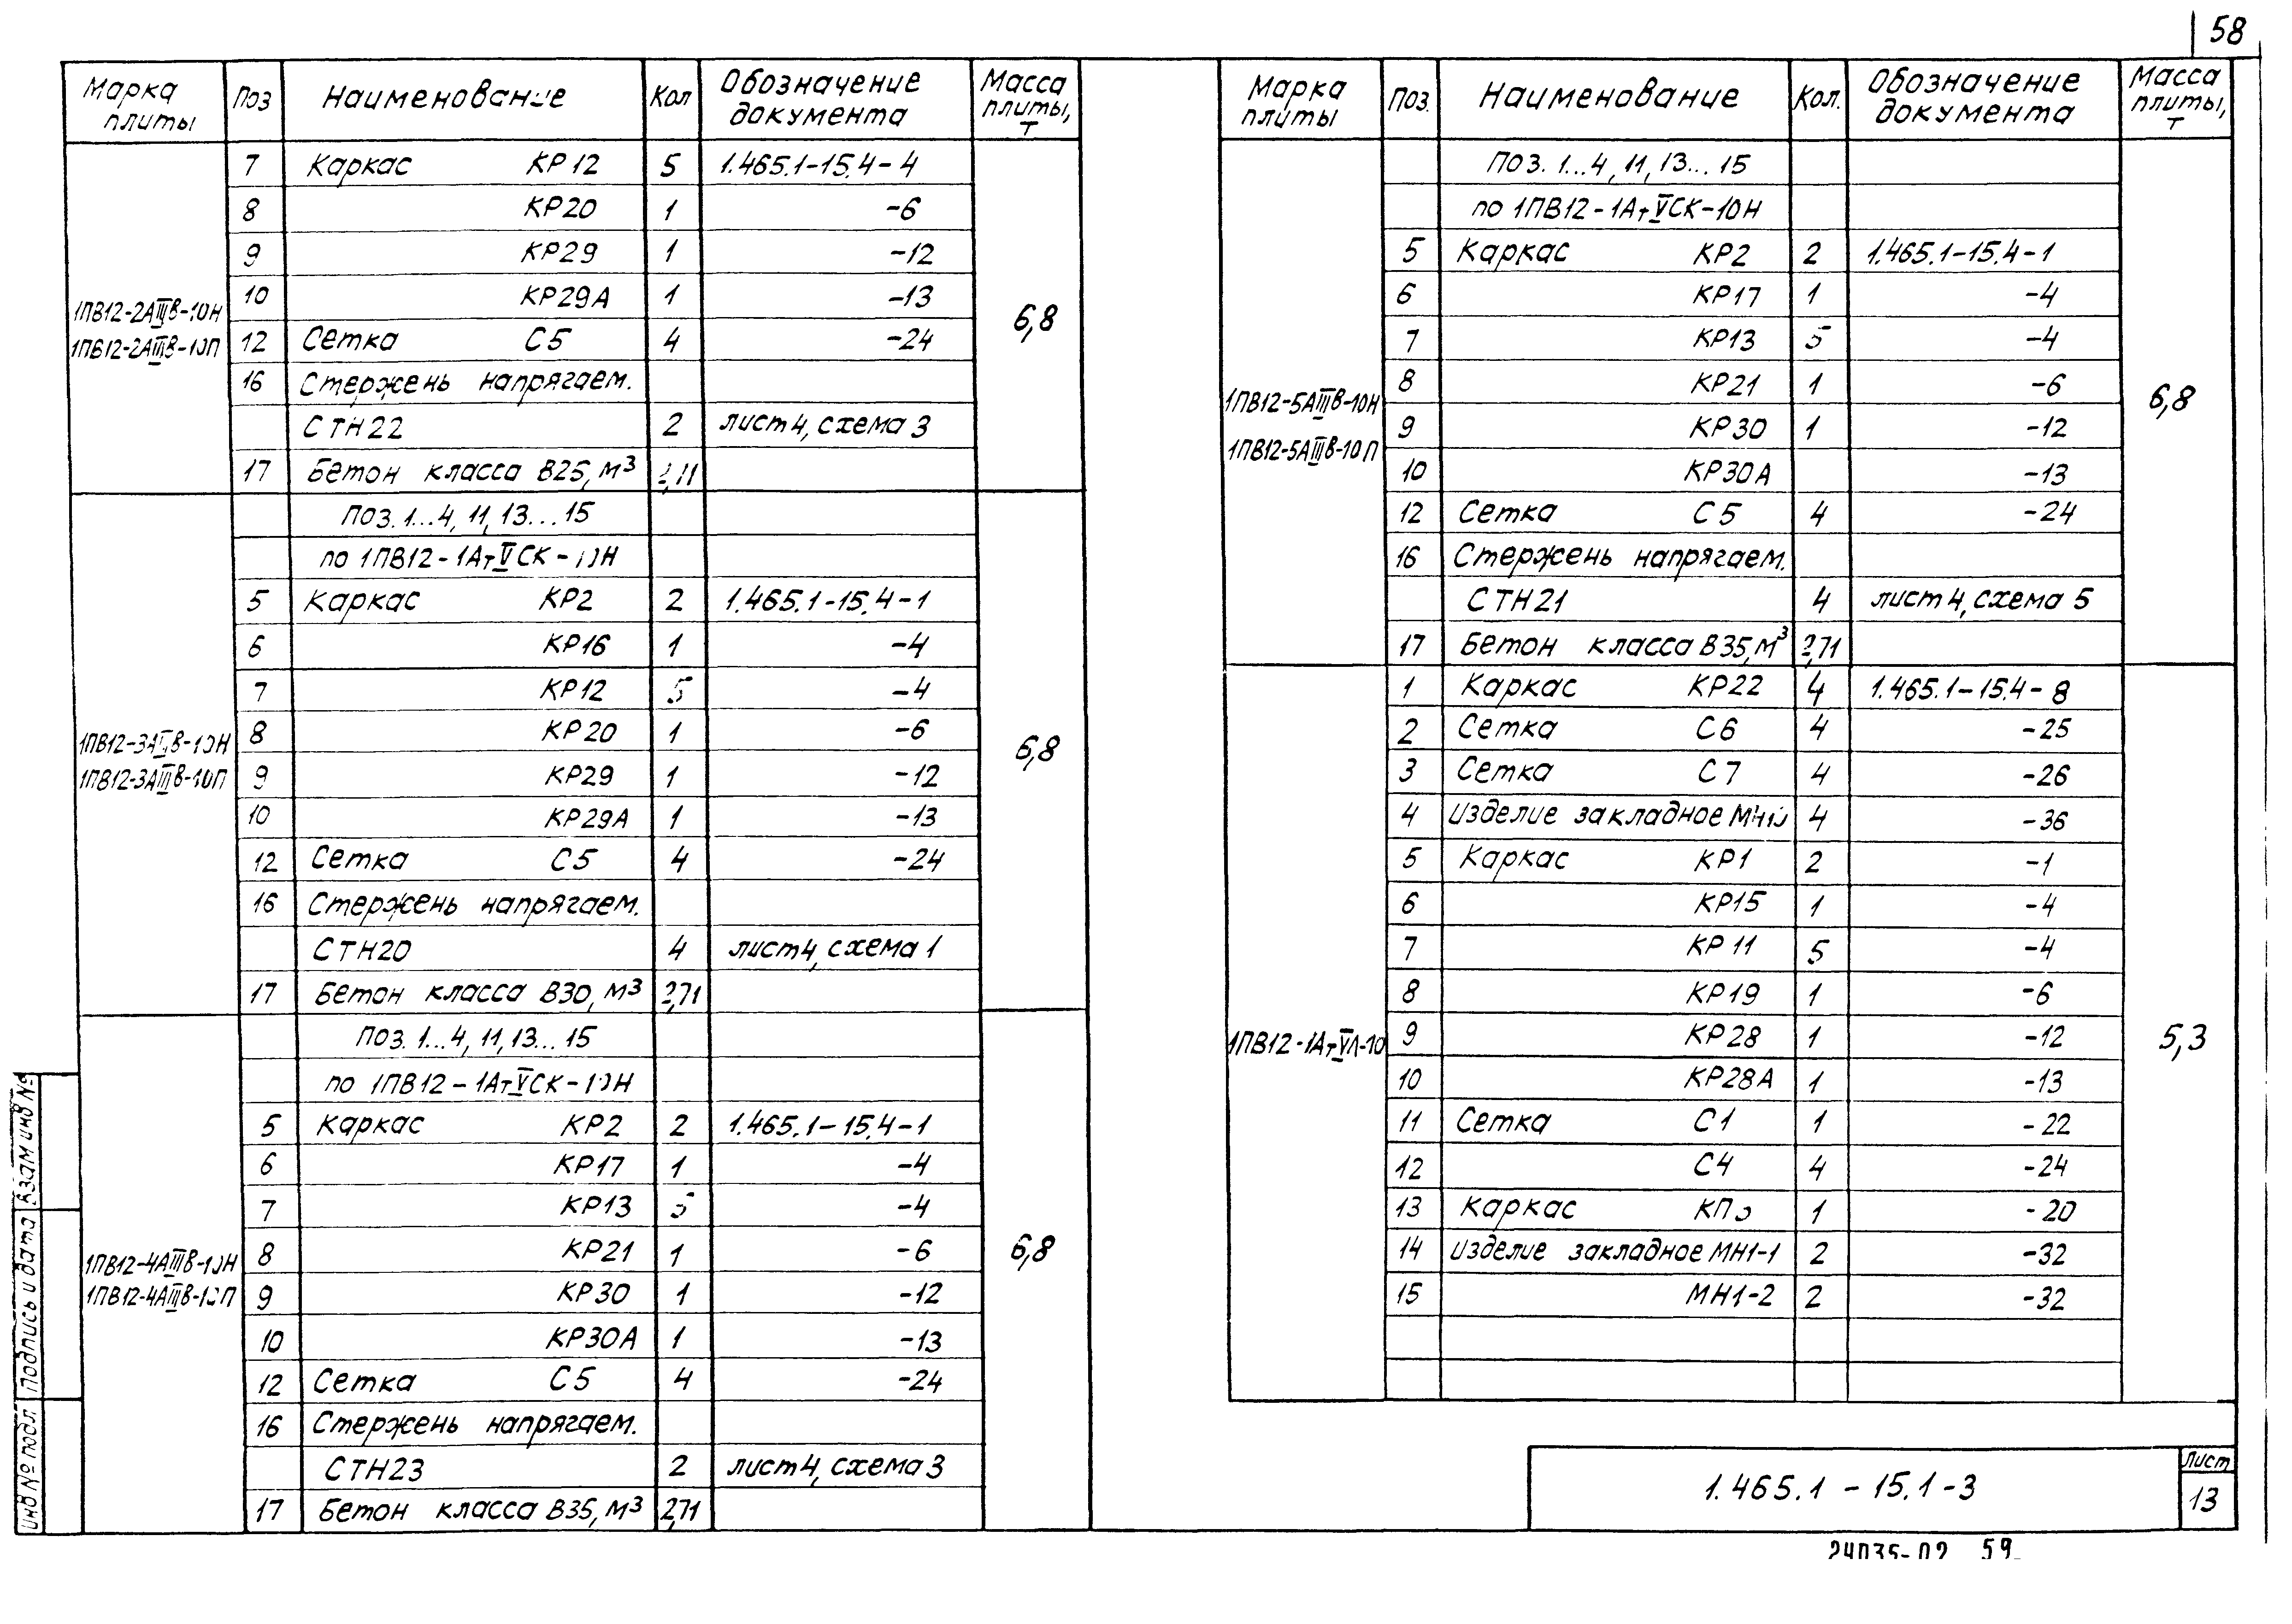 58
Марка плиты | Поз | Наименование | Кол | Обозначение документа | Масса плиты, т
1ПВ12-2АIIIв-10Н
1ПВ12-2АIIIв-10П
6,8
7 Каркас КР12 5 1.465.1-15.4-4
8 КР20 1 -6
9 КР29 1 -12
10 КР29А 1 -13
12 Сетка С5 4 -24
16 Стержень напрягаем.
СТН22 2 лист 4, схема 3
17 Бетон класса В25, м³
1ПВ12-3АIIIв-10Н
1ПВ12-3АIIIв-10П
6,8
Поз. 1...4, 11, 13...15
по 1ПВ12-1АтVСК-10Н
5 Каркас КР2 2 1.465.1-15.4-1
6 КР16 1 -4
7 КР12 5 -4
8 КР20 1 -6
9 КР29 1 -12
10 КР29А 1 -13
12 Сетка С5 4 -24
16 Стержень напрягаем.
СТН20 4 лист 4, схема 1
17 Бетон класса В30, м³ 2,71
1ПВ12-4АIIIв-10Н
1ПВ12-4АIIIв-10П
6,8
Поз. 1...4, 11, 13...15
по 1ПВ12-1АтVСК-10Н
5 Каркас КР2 2 1.465.1-15.4-1
6 КР17 1 -4
7 КР13 5 -4
8 КР21 1 -6
9 КР30 1 -12
10 КР30А 1 -13
12 Сетка С5 4 -24
16 Стержень напрягаем.
СТН23 2 лист 4, схема 3
17 Бетон класса В35, м³ 2,71
Марка плиты | Поз. | Наименование | Кол. | Обозначение документа | Масса плиты, т
1ПВ12-5АIIIв-10Н
1ПВ12-5АIIIв-10П
6,8
Поз. 1...4, 11, 13...15
по 1ПВ12-1АтVСК-10Н
5 Каркас КР2 2 1.465.1-15.4-1
6 КР17 1 -4
7 КР13 5 -4
8 КР21 1 -6
9 КР30 1 -12
10 КР30А -13
12 Сетка С5 4 -24
16 Стержень напрягаем.
СТН21 4 лист 4, схема 5
17 Бетон класса В35, м³ 2,71
1ПВ12-1АтVЛ-10
5,3
1 Каркас КР22 4 1.465.1-15.4-8
2 Сетка С6 4 -25
3 Сетка С7 4 -26
4 Изделие закладное 4 -36
5 Каркас КР1 2 -1
6 КР15 1 -4
7 КР11 5 -4
8 КР19 1 -6
9 КР28 1 -12
10 КР28А 1 -13
11 Сетка С1 1 -22
12 С4 4 -24
13 Каркас 1 -20
14 Изделие закладное МН1-1 2 -32
15 МН1-2 2 -32
Инв № подл
Подпись и дата
Взам инв №
1.465.1-15.1-3
Лист
13
24035-02 59